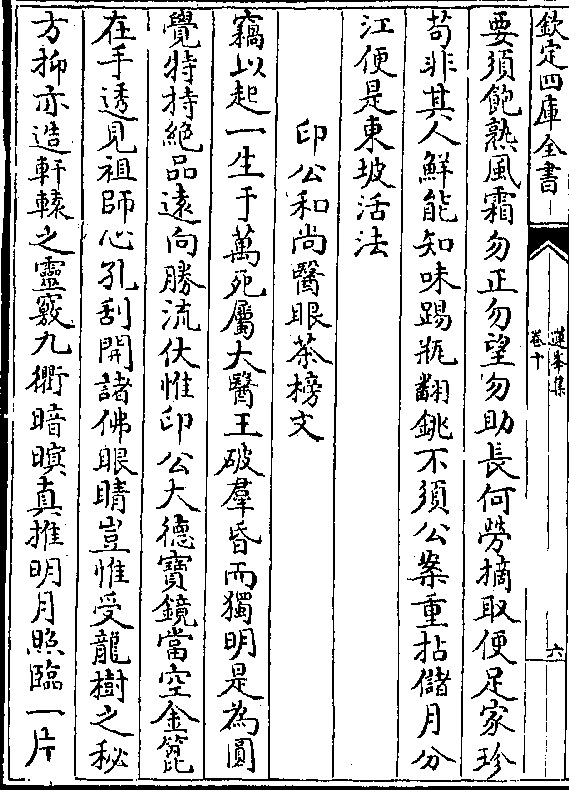 欽定四庫全書
蓮峯集
卷十
六
要須飽熟風霜勿正勿望勿助長何勞摘取便足家珍
苟非其人鮮能知味踢瓶翻銚不須公案重拈儲月分
江便是東坡活法
印公和尚醫眼茶榜文
竊以起一生于萬死屬大醫王破羣昏而獨明是為圓
覺特持絶品遠向勝流伏惟印公大德寶鏡當空金篦
在手透見祖師心孔刮開諸佛眼睛豈惟受龍樹之秘
方抑亦造軒轅之靈竅九衢暗暝真推明月照臨一片